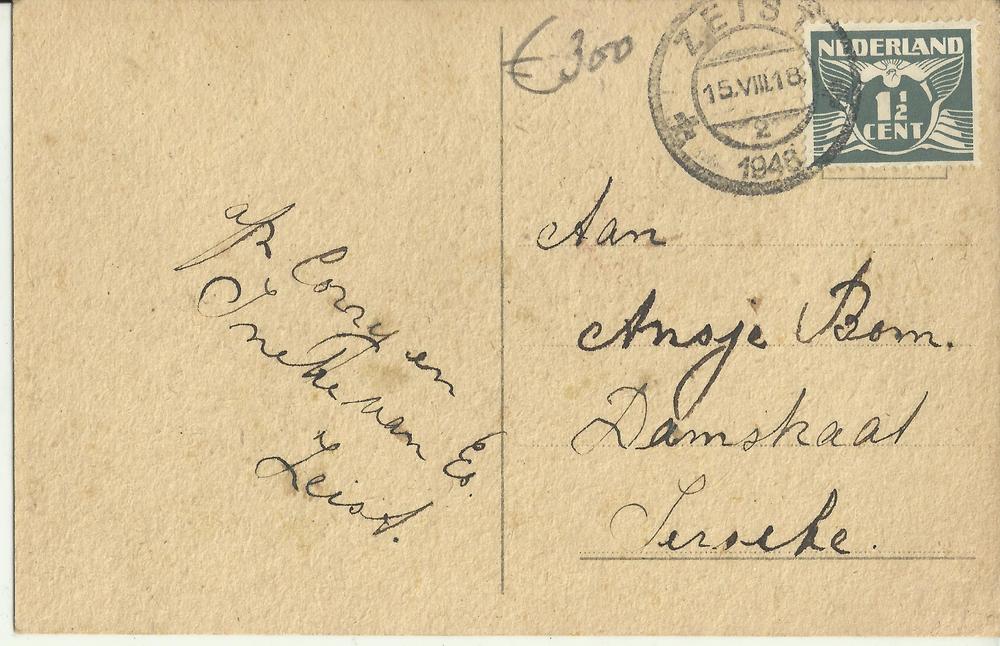 € 300
ZEIST
15.VIII.18
2
1948
NEDERLAND
1½
CENT
Aan
Ansje Bom.
Damstraat
Ierseke.
afz Corry en
Ineke van Es.
Zeist.